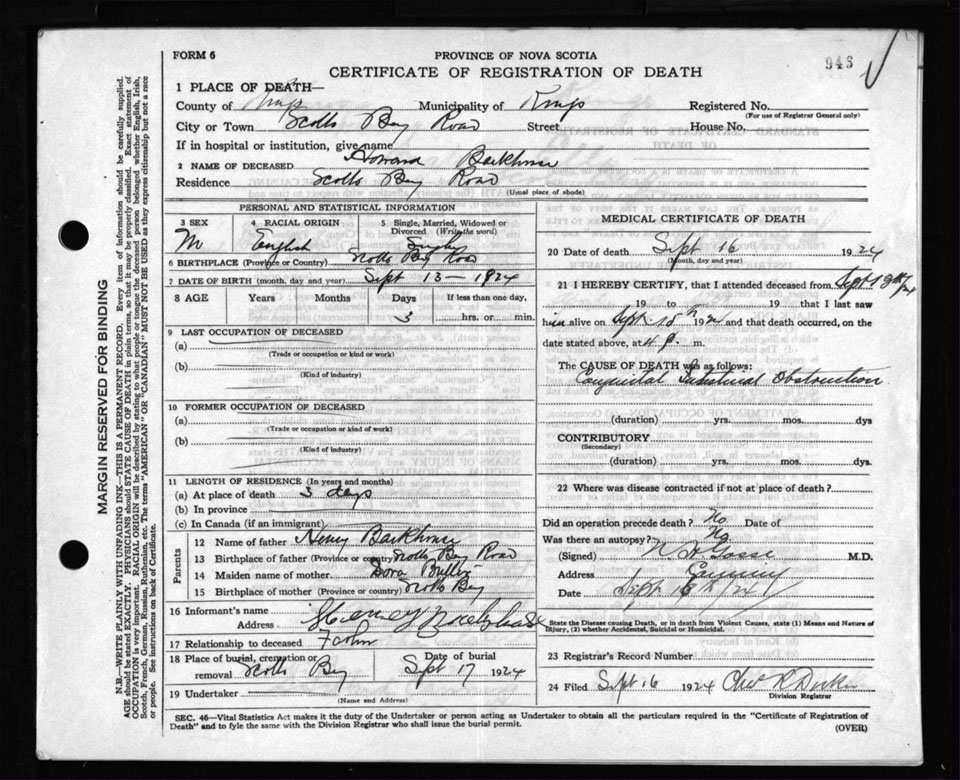 FORM 6
PROVINCE OF NOVA SCOTIA
946
CERTIFICATE OF REGISTRATION OF DEATH
1 PLACE OF DEATH—
County of Kings Municipality of Kings Registered No.
(For use of Registrar General only)
City or Town Scotts Bay Road Street House No.
If in hospital or institution, give name
2 NAME OF DECEASED Howard Barkhouse
Residence Scotts Bay Road
(Usual place of abode)
PERSONAL AND STATISTICAL INFORMATION
3 SEX 4 RACIAL ORIGIN 5 Single, Married, Widowed or Divorced (Write the word)
M English Single
6 BIRTHPLACE (Province or Country) Scotts Bay Road
7 DATE OF BIRTH (month, day and year) Sept 13 — 1924
8 AGE Years Months Days If less than one day,
3 hrs. or min.
9 LAST OCCUPATION OF DECEASED
(a)
(Trade or occupation or kind or work)
(b)
(Kind of industry)
10 FORMER OCCUPATION OF DECEASED
(a)
(Trade or occupation or kind of work)
(b)
(Kind of industry)
11 LENGTH OF RESIDENCE (In years and months)
(a) At place of death 3 days
(b) In province
(c) In Canada (if an immigrant)
Parents
12 Name of father Henry Barkhouse
13 Birthplace of father (Province or country) Scotts Bay Road
14 Maiden name of mother Dora
15 Birthplace of mother (Province or country) Scotts Bay
16 Informant's name Henry Barkhouse
Address
17 Relationship to deceased Father
18 Place of burial, cremation or removal Scotts Bay Date of burial Sept 17 1924
19 Undertaker
(Name and Address)
MEDICAL CERTIFICATE OF DEATH
20 Date of death Sept 16 1924
(Month, day and year)
21 I HEREBY CERTIFY, that I attended deceased from Sept 13th/24
19 to 19 that I last saw
him alive on Sept 15th 1924 and that death occurred, on
date stated above, at 4 P. m.
The CAUSE OF DEATH was as follows:
Congenital Intestinal Obstruction
(duration) yrs. mos. dys
CONTRIBUTORY
(Secondary)
(duration) yrs. mos. dys.
22 Where was disease contracted if not at place of death?
Did an operation precede death? No Date of
Was there an autopsy? No
(Signed) M.D.
Address Canning
Date Sept 16th/24
State the Disease causing Death, or in death from Violent Causes, state (1) Means and Nature of
Injury, (2) whether Accidental, Suicidal or Homicidal.
23 Registrar's Record Number
24 Filed Sept 16 1924 Chas R
Division Registrar
SEC. 46—Vital Statistics Act makes it the duty of the Undertaker or person acting as Undertaker to obtain all the particulars required in the "Certificate of Registration of
Death" and to fyle the same with the Division Registrar who shall issue the burial permit.
(OVER)
MARGIN RESERVED FOR BINDING
N.B.—WRITE PLAINLY WITH UNFADING INK—THIS IS A PERMANENT RECORD. Every item of information should be carefully supplied.
AGE should be stated EXACTLY. PHYSICIANS should STATE CAUSE OF DEATH in plain terms, so that it may be properly classified. Exact statement of
OCCUPATION is very important. RACIAL ORIGIN will be described by stating to what people or tongue the deceased person belonged whether English, Irish,
Scotch, French, German, Russian, Ruthenian, etc. The terms "AMERICAN" OR "CANADIAN" MUST NOT BE USED as they express citizenship but not a race
or people. See instructions on back of Certificate.